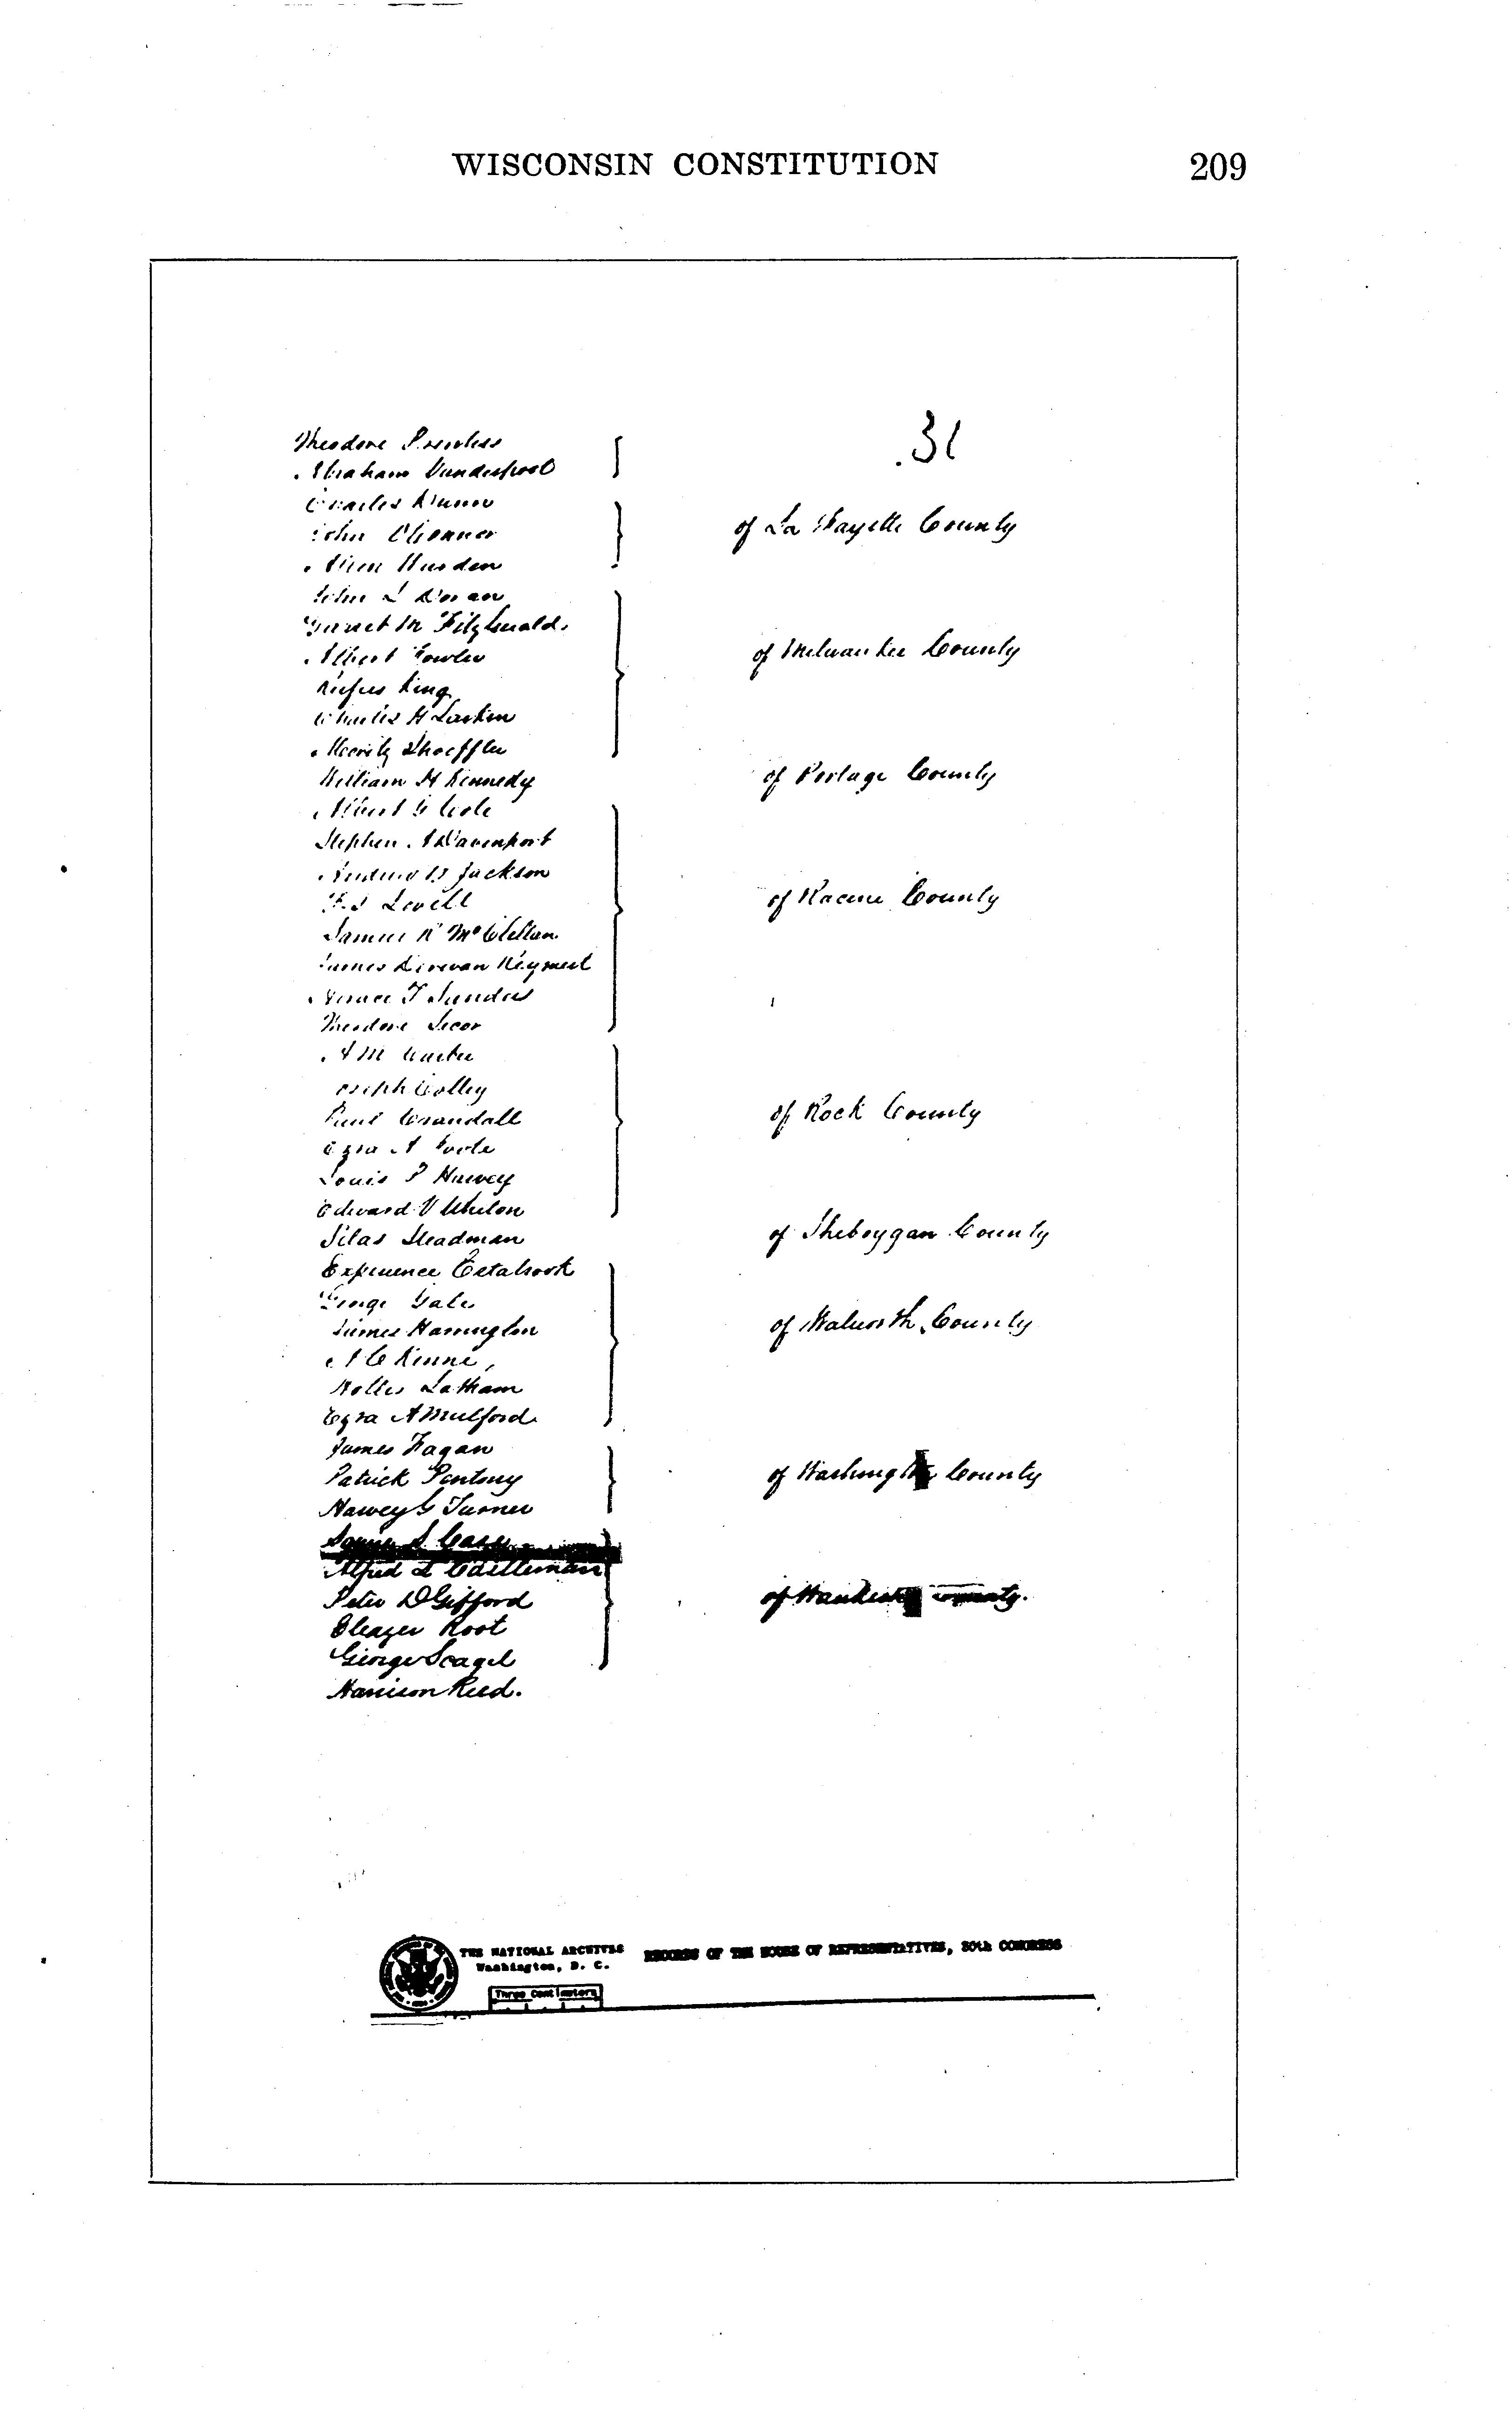 WISCONSIN CONSTITUTION 209
31
Theodore Prentiss
Abraham Vanderpool
Charles Dunn
John O'Connor
Allen Warden
of La Fayette County
John L Doran
Garret M Fitzgerald.
Albert Fowler
Rufus King
Charles H Larkin
Moritz Schoeffler
of Milwaukee County
William H Kennedy
of Portage County
Albert G Cole
Stephen A Davenport
Andrew B Jackson
F. S Lovell
Samuel R McClellan
James Doolittle Reymert
Horace T Sanders
Theodore Secor
of Racine County
A M Carter
Joseph Colley
Paul Crandall
Ezra A Foote
Louis P Harvey
Edward V Whiton
of Rock County
Silas Steadman
of Sheboygan County
Experience Estabrook
George Gale
James Harrington
A C Kinne,
Hollis Latham
Ezra A Mulford
of Walworth County
James Fagan
Patrick Pentony
Harvey G Turner
of Washington County
Squire S. Case
Alfred L Castleman
Peter D Gifford
Eleazer Root
George Scagel
of Waukesha County.
Harrison Reed.
THE NATIONAL ARCHIVES
Washington, D. C.
RECORDS OF THE HOUSE OF REPRESENTATIVES, 30th CONGRESS
Three Centimeters